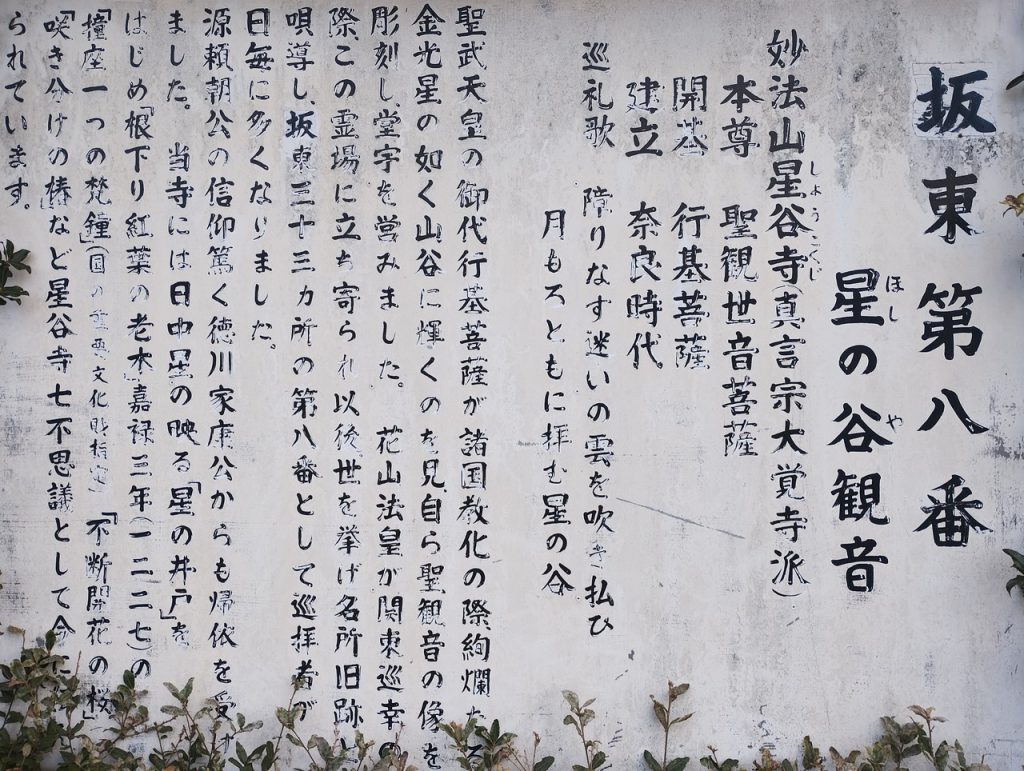 坂東第八番
星の谷観音
ほし
や
妙法山星谷寺(真言宗大覚寺派)
しょうこくじ
本尊 聖観世音菩薩
開基 行基菩薩
建立 奈良時代
巡礼歌 障りなす迷いの雲を吹き払ひ
月もろともに拝む星の谷
聖武天皇の御代行基菩薩が諸国教化の際絢爛たる
金光星の如く山谷に輝くのを見、自ら聖観音の像を
彫刻し、堂宇を営みました。 花山法皇が関東巡幸の
際、この霊場に立ち寄られ以後世を挙げ名所旧跡と
唄導し、坂東三十三カ所の第八番として巡拝者が
日毎に多くなりました。
源頼朝公の信仰篤く徳川家康公からも帰依を受け
ました。 当寺には日中星の映る「星の井戸」を
はじめ「根下り紅葉の老木」嘉禄三年(一二二七)の
「撞座一つの梵鐘」(国の重要文化財指定)「不断開花の桜」
「咲き分けの椿」など星谷寺七不思議として今に
られています。